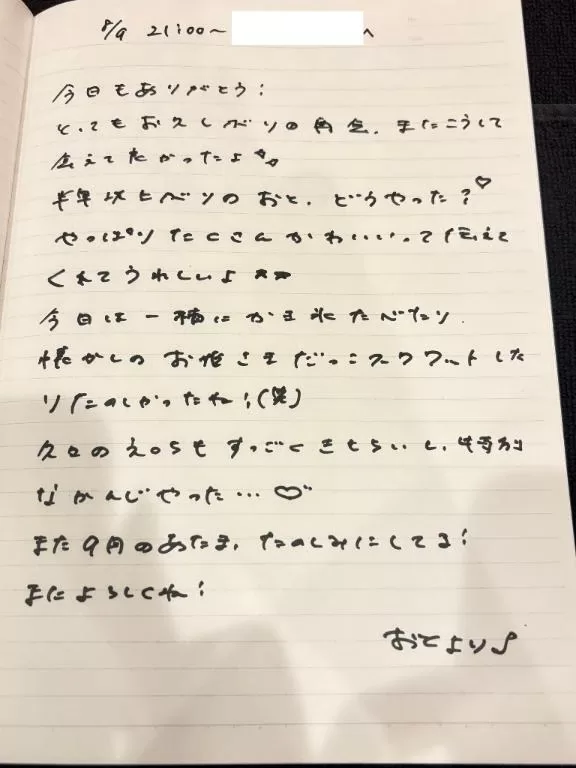 8/9 21:00〜 へ
今日もありがとう!
とってもお久しベリの再会、またこうして
会えてたかったよ
半年以上ベリのおと、どうやった?♡
やっぱりたくさんかわいいって伝えて
くれてうれしいよ
今日は一緒にかき氷たべたり
懐かしのお姫さまだっこスクワットした
りたのしかったね!(笑)
久々のえ〇ちもすっごくきもちいし、特別
なかんじやった…♡
また9月のあたま、たのしみにしてる!
またよろしくね!
おとより♪